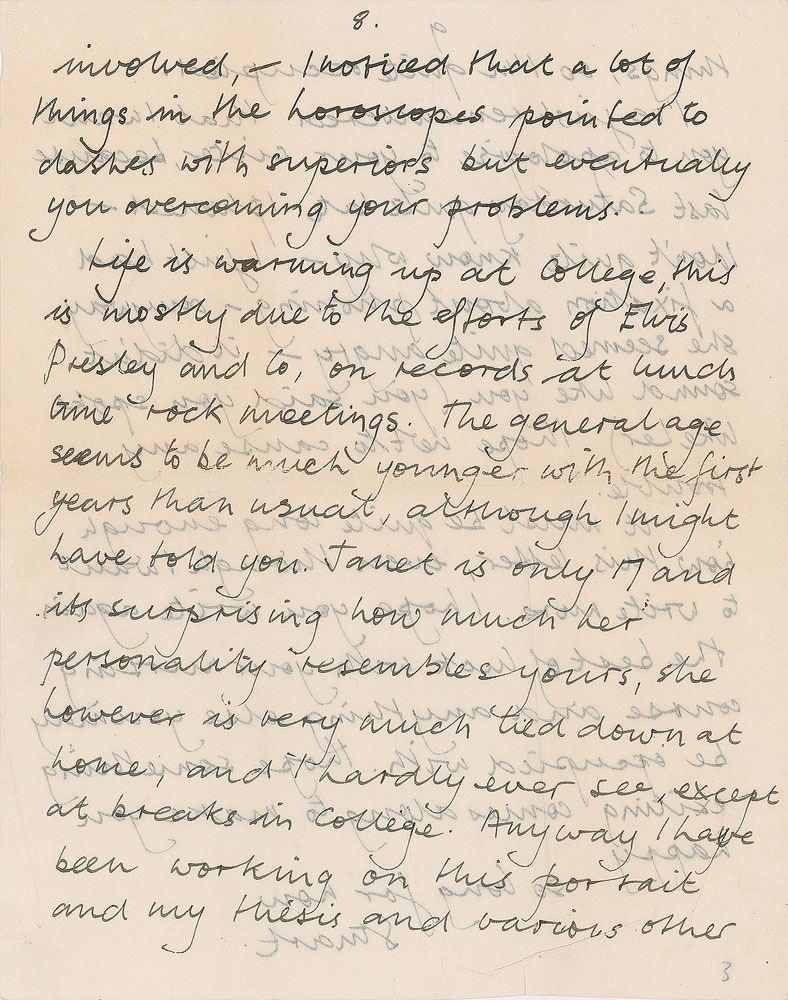 8.
involved, – I noticed that a lot of
things in the horoscopes pointed to
clashes with superiors but eventually
you overcoming your problems.
Life is warming up at College, this
is mostly due to the efforts of Elvis
Presley and Co, on records at lunch
time rock meetings. The general age
seems to be much younger with the first
years than usual, although I might
have told you. Janet is only 17 and
its surprising how much her
personality resembles yours, she
however is very much tied down at
home, and I hardly ever see, except
at breaks in College. Anyway I have
been working on this portrait
and my thesis and various other
3